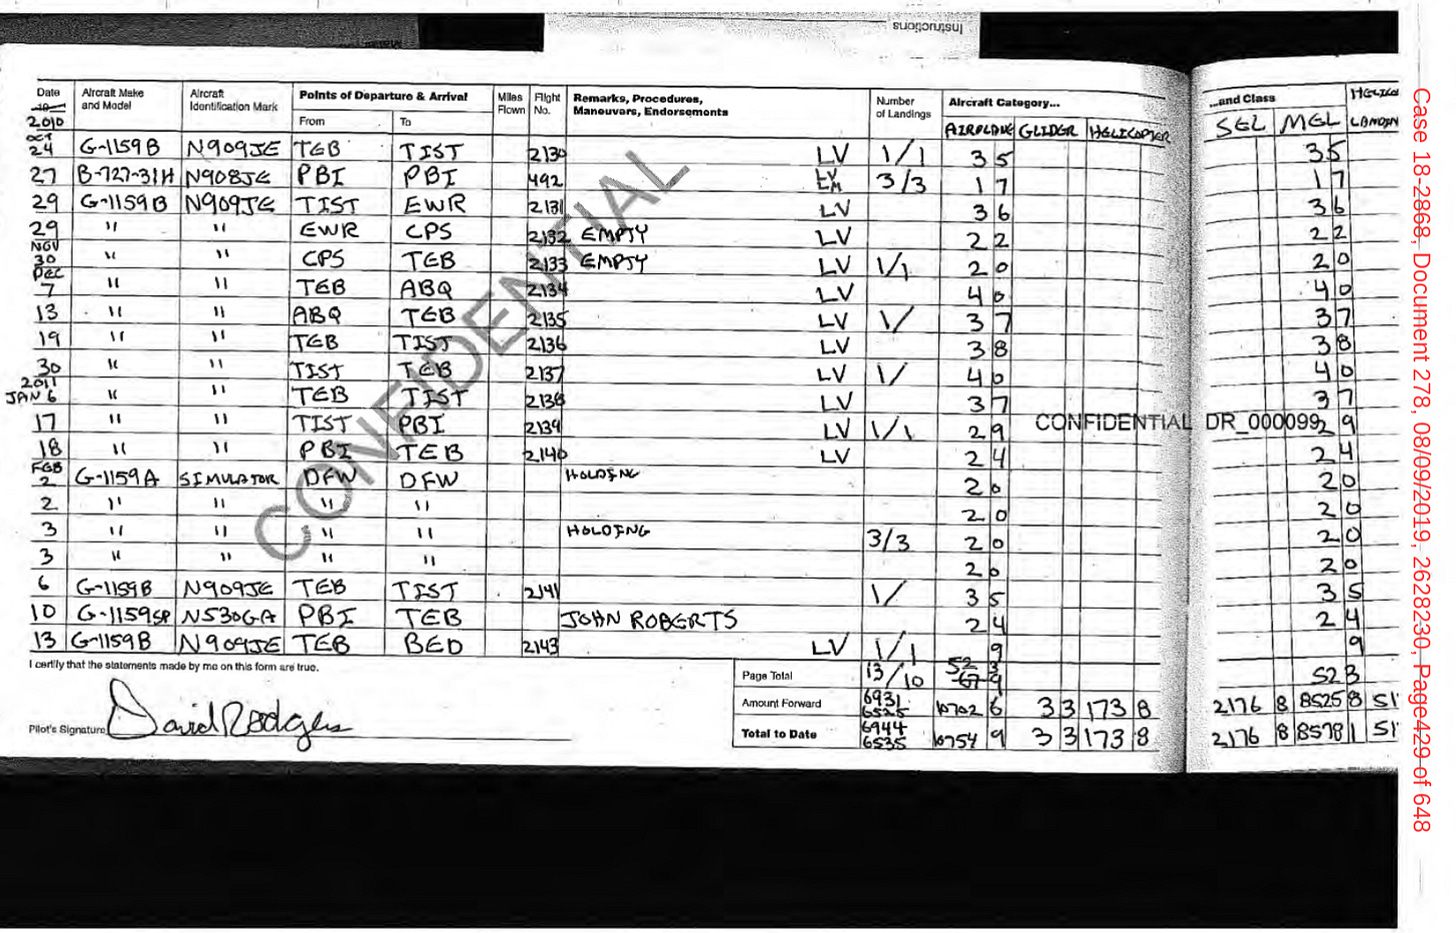 Instructions
Date Aircraft Make and Model Aircraft Identification Mark Points of Departure & Arrival From To Miles Flown Flight No. Remarks, Procedures, Maneuvers, Endorsements Number of Landings Aircraft Category... AIRPLANE GLIDER HELICOPTER ...and Class SEL MEL
2010
OCT 24 G-1159B N909JE TEB TIST 2130 LV 1/1 3 5 3 5
27 B-727-31H N908JE PBI PBI 492 LV EM 3/3 1 7 1 7
29 G-1159B N909JE TIST EWR 2131 LV 3 6 3 6
29 " " EWR CPS 2132 EMPTY LV 2 2 2 2
NOV 30 " " CPS TEB 2133 EMPTY LV 1/1 2 0 2 0
DEC 7 " " TEB ABQ 2134 LV 4 0 4 0
13 " " ABQ TEB 2135 LV 1/ 3 7 3 7
19 " " TEB TIST 2136 LV 3 8 3 8
30 " " TIST TEB 2137 LV 1/ 4 0 4 0
2011 JAN 6 " " TEB TIST 2138 LV 3 7 3 7
17 " " TIST PBI 2139 LV 1/1 2 9 2 9
CONFIDENTIAL DR_000099
18 " " PBI TEB 2140 LV 2 4 2 4
FEB 2 G-1159A SIMULATOR DFW DFW HOLDING 2 0 2 0
2 " " " " 2 0 2 0
3 " " " " HOLDING 3/3 2 0 2 0
3 " " " " 2 0 2 0
6 G-1159B N909JE TEB TIST 2141 1/ 3 5 3 5
10 G-1159SP N530GA PBI TEB JOHN ROBERTS 2 4 2 4
13 G-1159B N909JE TEB BED 2143 LV 1/1 9 9
CONFIDENTIAL
I certify that the statements made by me on this form are true.
Page Total 13/10 52 3 52 3
Amount Forward 6931 6525 10702 6 3 3 173 8 2176 8 8525 8 51
Pilot's Signature David Rodgers
Total to Date 6944 6535 10754 9 3 3 173 8 2176 8 8578 1 51
Case 18-2868, Document 278, 08/09/2019, 2628230, Page429 of 648